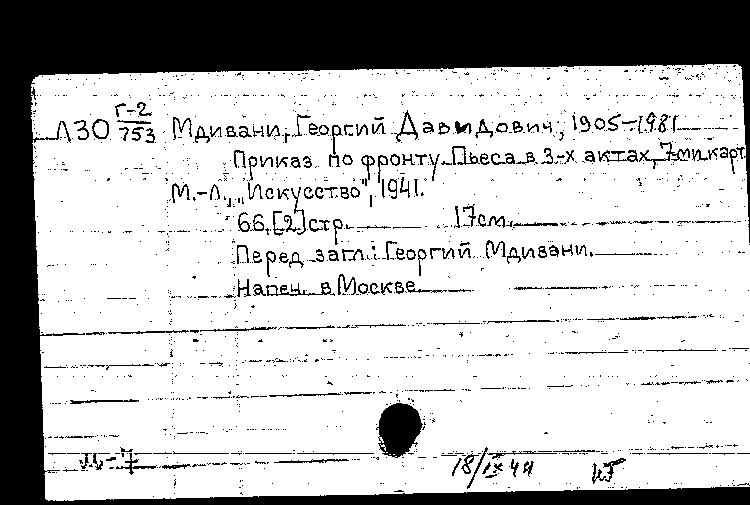 Л30 Г-2/753 Мдивани, Георгий Давидович, 1905-1981
Приказ по фронту. Пьеса в 3-х актах, 7-ми карт.
М.-Л., "Искусство", 1941.
66, [2] стр. 17см.
Перед загл.: Георгий Мдивани.
Напеч. в Москве.
М-7 18/IX 44